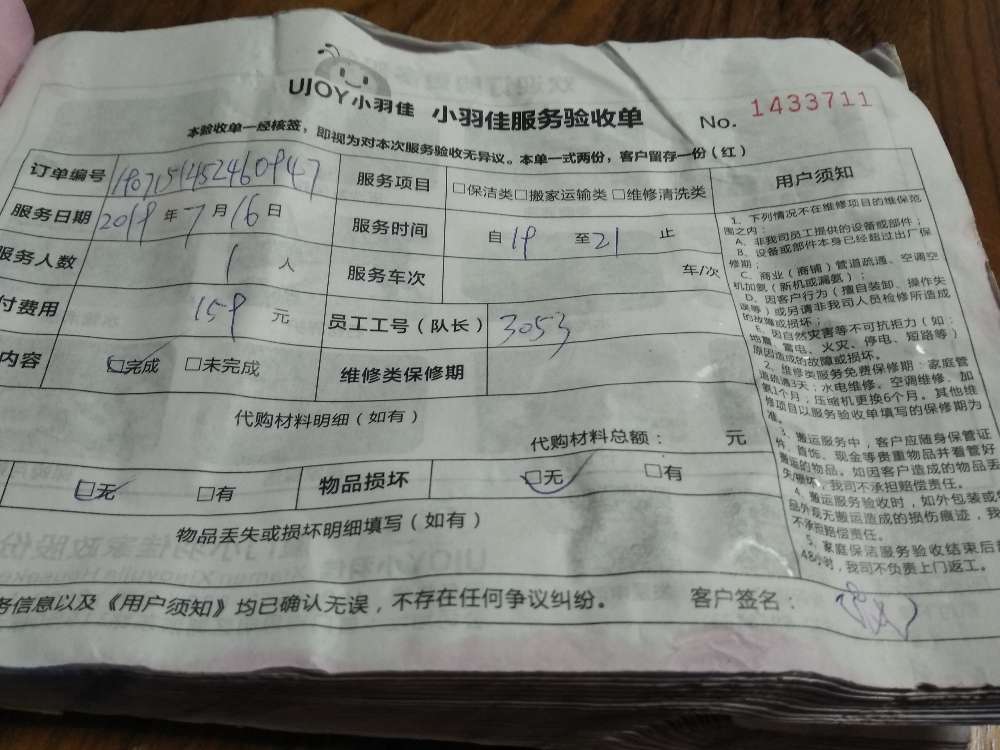 UJOY小羽佳 小羽佳服务验收单 No. 1433711
本验收单一经核签，即视为对本次服务验收无异议。本单一式两份，客户留存一份（红）
订单编号 1907151452460947 服务项目 □保洁类□搬家运输类□维修清洗类
服务日期 2019年7月16日 服务时间 自19至21止
服务人数 1人 服务车次 车/次
付费用 159元 员工工号（队长） 3053
内容 □完成 □未完成 维修类保修期
代购材料明细（如有）
代购材料总额： 元
□无 □有 物品损坏 □无 □有
物品丢失或损坏明细填写（如有）
务信息以及《用户须知》均已确认无误，不存在任何争议纠纷。 客户签名：
用户须知
1、下列情况不在维修项目的维保范
围之内：
A、非我司员工提供的设备或部件；
B、设备或部件本身已经超过出厂保
修期；
C、商业（商铺）管道疏通、空调空
机加氨（新机或漏氨）；
D、因客户行为（擅自装卸、操作失
误等）或另请非我司人员检修所造成
的故障或损坏；
E、因自然灾害等不可抗拒力（如：
地震、雷电、火灾、停电、短路等）
原因造成的故障或损坏。
2、维修类服务免费保修期：家庭管
道疏通3天；水电维修、空调维修、加
氨1个月；压缩机更换6个月。其他维
修项目以服务验收单填写的保修期为
准。
3、搬运服务中，客户应随身保管证
件、首饰、现金等贵重物品并看管好
搬运的物品。如因客户造成的物品丢
失/损坏，我司不承担赔偿责任。
4、搬运服务验收时，如外包装或
品外观无搬运造成的损伤痕迹，我
不承担赔偿责任。
5、家庭保洁服务验收结束后
48小时，我司不负责上门返工。